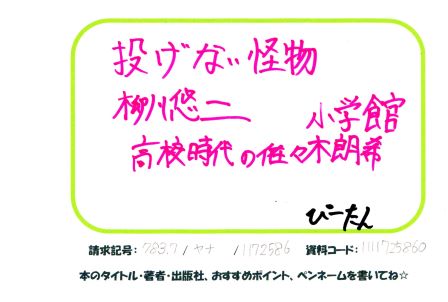 投げない怪物
柳川悠二 小学館
高校時代の佐々木朗希
びーたん
請求記号: 783.7 / ヤナ / 1172586 資料コード: 1111725860
本のタイトル・著者・出版社、おすすめポイント、ペンネームを書いてね☆